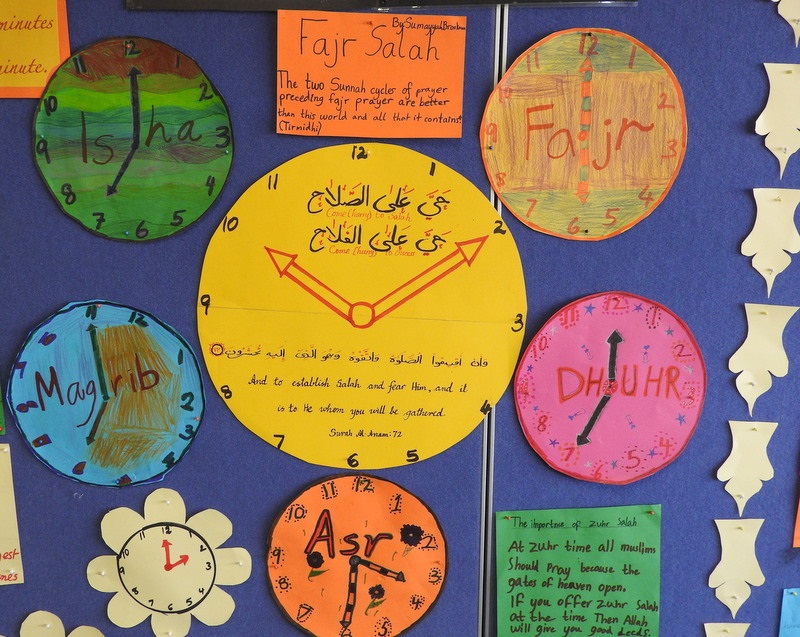 minutes
minute.
Fajr Salah
By Sumayyah
The two Sunnah cycles of prayer
preceding fajr prayer are better
than this world and all that it contains
(Tirmidhi)
Isha
12 2 3 4 5 6 7 8 9 10 11
Fajr
12 1 2 3 4 5 6 7 8 9 10 11
12 1 2 3 4 5 6 7 8 9 10 11
حَيَّ عَلَىٰ الصَّلَاح
Come (hurry) to Salah
حَيَّ عَلَىٰ الفَلَاح
Come (hurry) to
And to establish Salah and fear Him, and it
is to He whom you will be gathered.
Surah Al-Anam: 72
Magrib
11 12 1 2 3
DHUHR
11 12 1 2 4 5 6 7 8 9 10
Asr
12 1 2 3 4 5 6 7 8 9 10 11
12 1 2 3 4 5 6 7 8 9 10 11
The importance of Zuhr Salah
At Zuhr time all muslims
Should pray because the
gates of heaven open.
If you offer Zuhr Salah
at the time Then Allah
will give you good deeds.